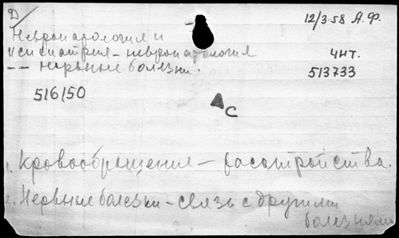 Д
12/3-58 А.Ф.
Невропатология и
психиатрия - невропатология
чнт.
-- нервные болезни.
513733
516150
АС
1. Кровообращения - расстройства.
2. Нервные болезни - связь с другими
болезнями